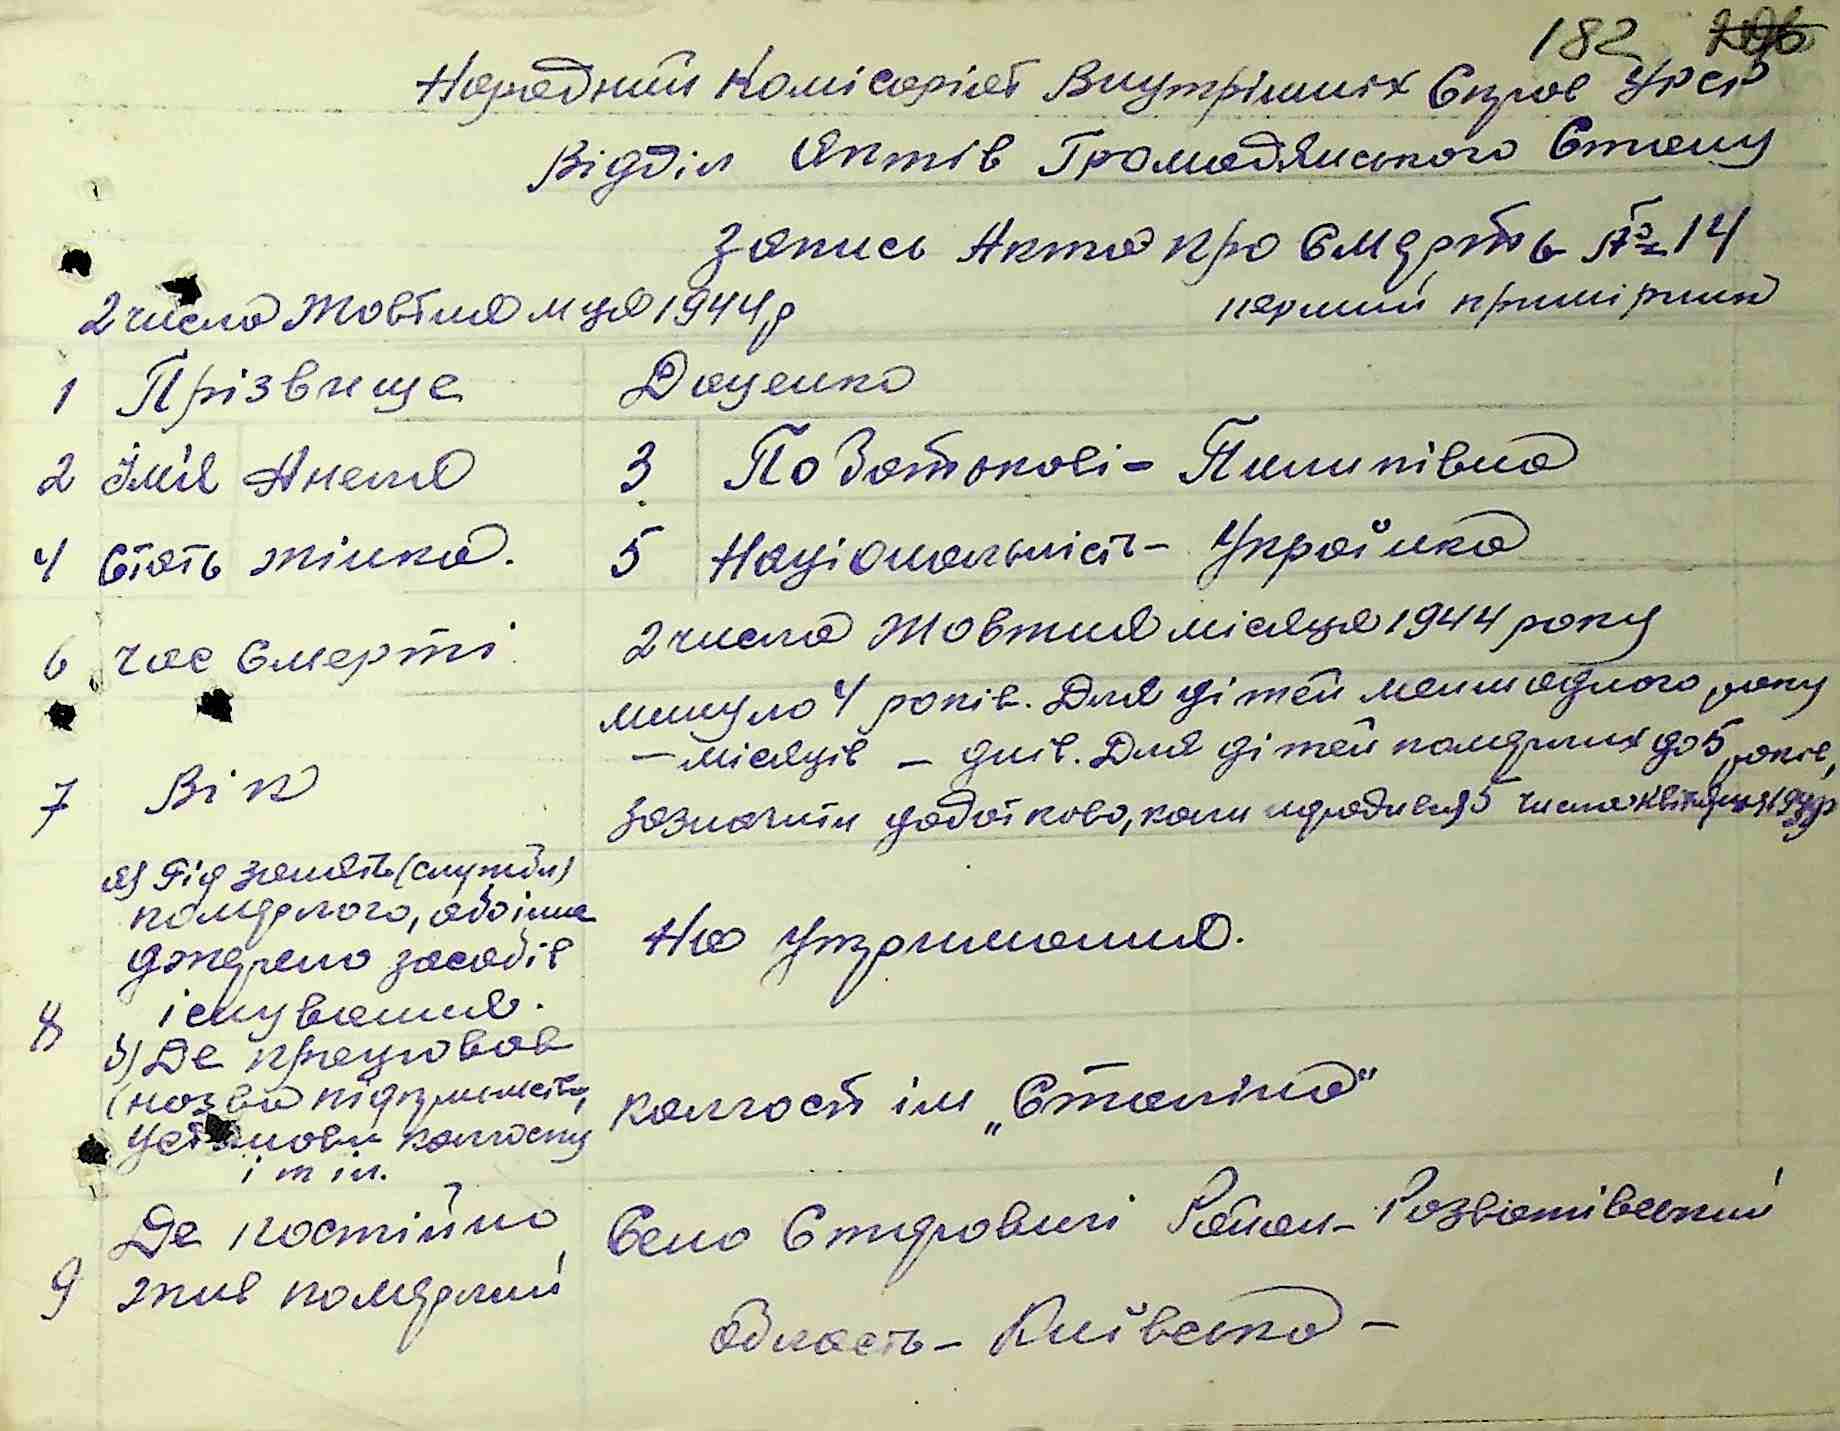 182
Народний Комісаріат Внутрішніх Справ УРСР
Відділ Актів Громадянського Стану
Запис Акта про Смерть № 14
2 числа Жовтня м-ця 1944 р
перший примірник
1 Прізвище Доценко
2 Ім'я 3 По Батькові - Пилипівна
4 Стать жінка. 5 Національність - Українка
6 Час Смерті 2 числа Жовтня місяця 1944 року
минуло 4 років. Для дітей менш одного року
— місяців — днів. Для дітей померлих до 5 років,
7 Вік
зазначити додатково, коли народився 5 числа
а) Рід занять (служби)
померлого, або інше
джерело засобів
існування.
На утриманні.
8
б) Де працював
(назва підприємства,
установи колгоспу
і т ін.
колгосп ім „Сталіна"
Де постійно
9 жив померлий
Село Район - Розважівський
область - Київська -